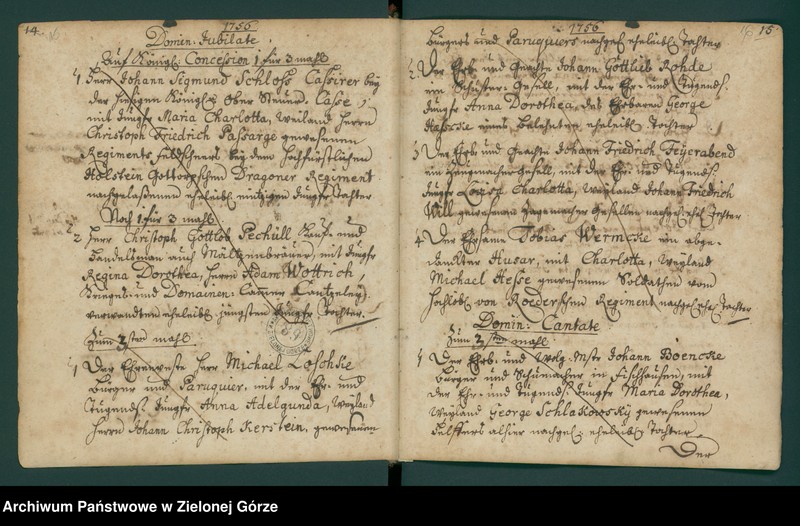 14.
1756
Domin: Jubilate.
Auf Königl: Concession 1 für 3 mahl
1 Herr Johann Sigmund Schloss Cassirer bey
der hiesigen Königl: Ober Steuer Casse,
mit Jungfr Maria Charlotta, Weiland Herrn
Christoph Friedrich Passarge gewesenen
Regiments Feldscheers bey dem Hochfürstlichen
Holstein Gottorpschen Dragoner Regiment
nachgelassenen eheleibl: einzigen Jungfr Tochter
Noch 1 für 3 mahl
2 Herr Christoph Gottlob Pechüll, Kauf- und
Handelsman auch Maltzenbräuer, mit Jungfr
Regina Dorothea, Herrn Adam Wottrich,
Krieges- und Domainen: Cammer Cantzeley
verwandten eheleibl: jüngsten Jungfr Tochter.
Zum 2ten mahl
1 Der Ehrenveste Herr Michael Loschke
Bürger und Paruquier, mit der Ehr- und
Tugends: Jungfr Anna Adelgunda, Weyland
Herrn Johann Christoph Kerstein, gewesenen
1756
15.
Bürgers und Paruquiers nachgel: eheleibl: Tochter
2 Der Ehrb: und Geachte Johann Gottlieb Rohde
ein Schuster-Gesell, mit der Ehr- und Tugends:
Jungfr Anna Dorothea, des Ehrbaren George
eines eheleibl: Tochter
3 Der Ehrb: und Geachte Johann Friedrich Feyerabend
ein Gesell, mit der Ehr- und Tugends:
Jungfr Louisa Charlotta, Weyland Johann Friedrich
Will gewesenen Gesellen nachgel: ehel: Tochter
4 Der Ehrsame Tobias Wermcke ein abge-
danckter Husar, mit Charlotta, Weyland
Michael Hesse gewesenen Soldathen von
Hochlöbl: von Roederschen Regiment nachgel: ehel: Tochter
Domin: Cantate
Zum 2ten mahl
1 Der Ehrb: und Wolg: Mstr Johann Boencke
Bürger und Schumacher in Fischhausen, mit
der Ehr- und Tugends: Jungfr Maria Dorothea,
Weyland George Schlakowsky gewesenen
alhier nachgel: eheleibl: Tochter
Der
Archiwum Państwowe w Zielonej Górze